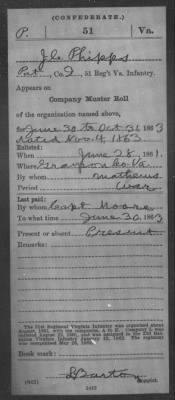 (CONFEDERATE.)
P. 51 Va.
J C Phipps
Pvt, Co. I, 51 Reg't Va. Infantry.
Appears on
Company Muster Roll
of the organization named above,
for June 30 to Oct 31, 1863
Dated Nov. 4, 1863
Enlisted:
When June 28, 1861.
Where Grayson Co. Va.
By whom Mathews
Period War
Last paid:
By whom Capt Moore
To what time June 30, 1863
Present or absent Present
Remarks:
The 51st Regiment Virginia Infantry was organized about
Book mark:
D Barton
(642) Copyist.